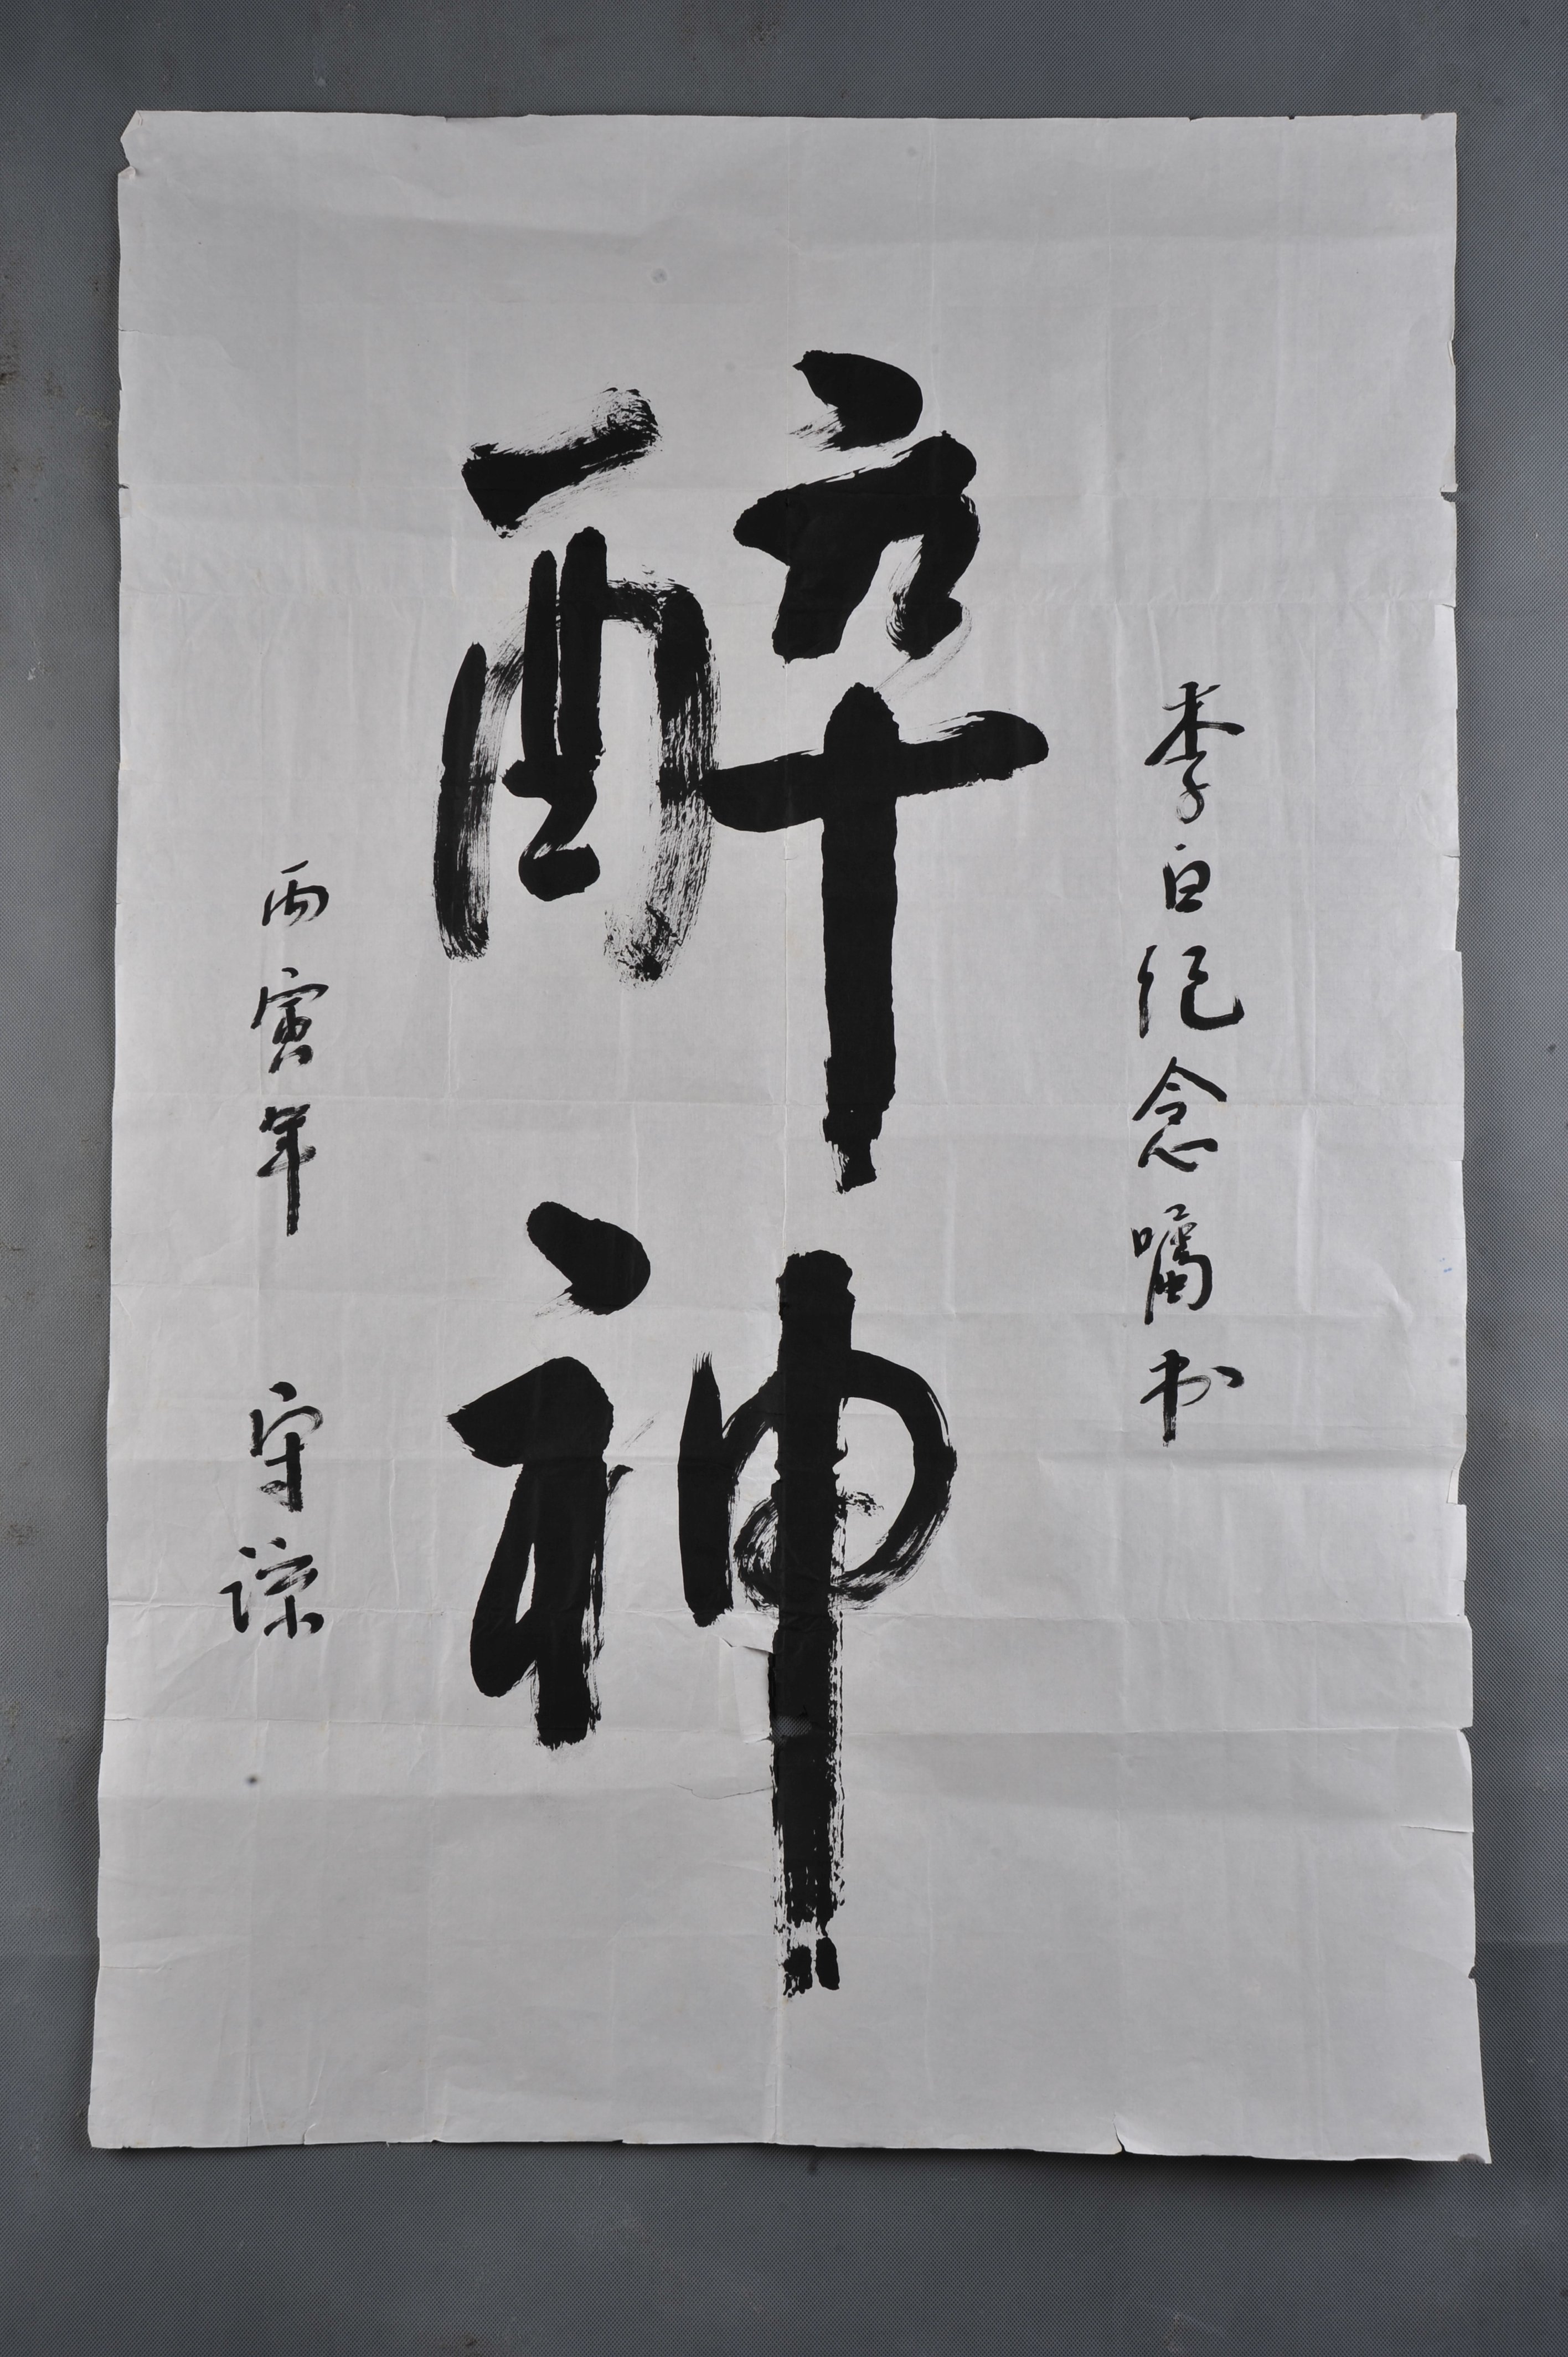 李白纪念嘱书
醉神
丙寅年 守谅